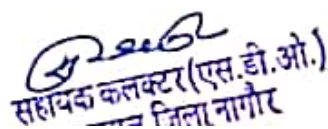 सहायक कलक्टर(एस.डी.ओ.)
जिला नागौर